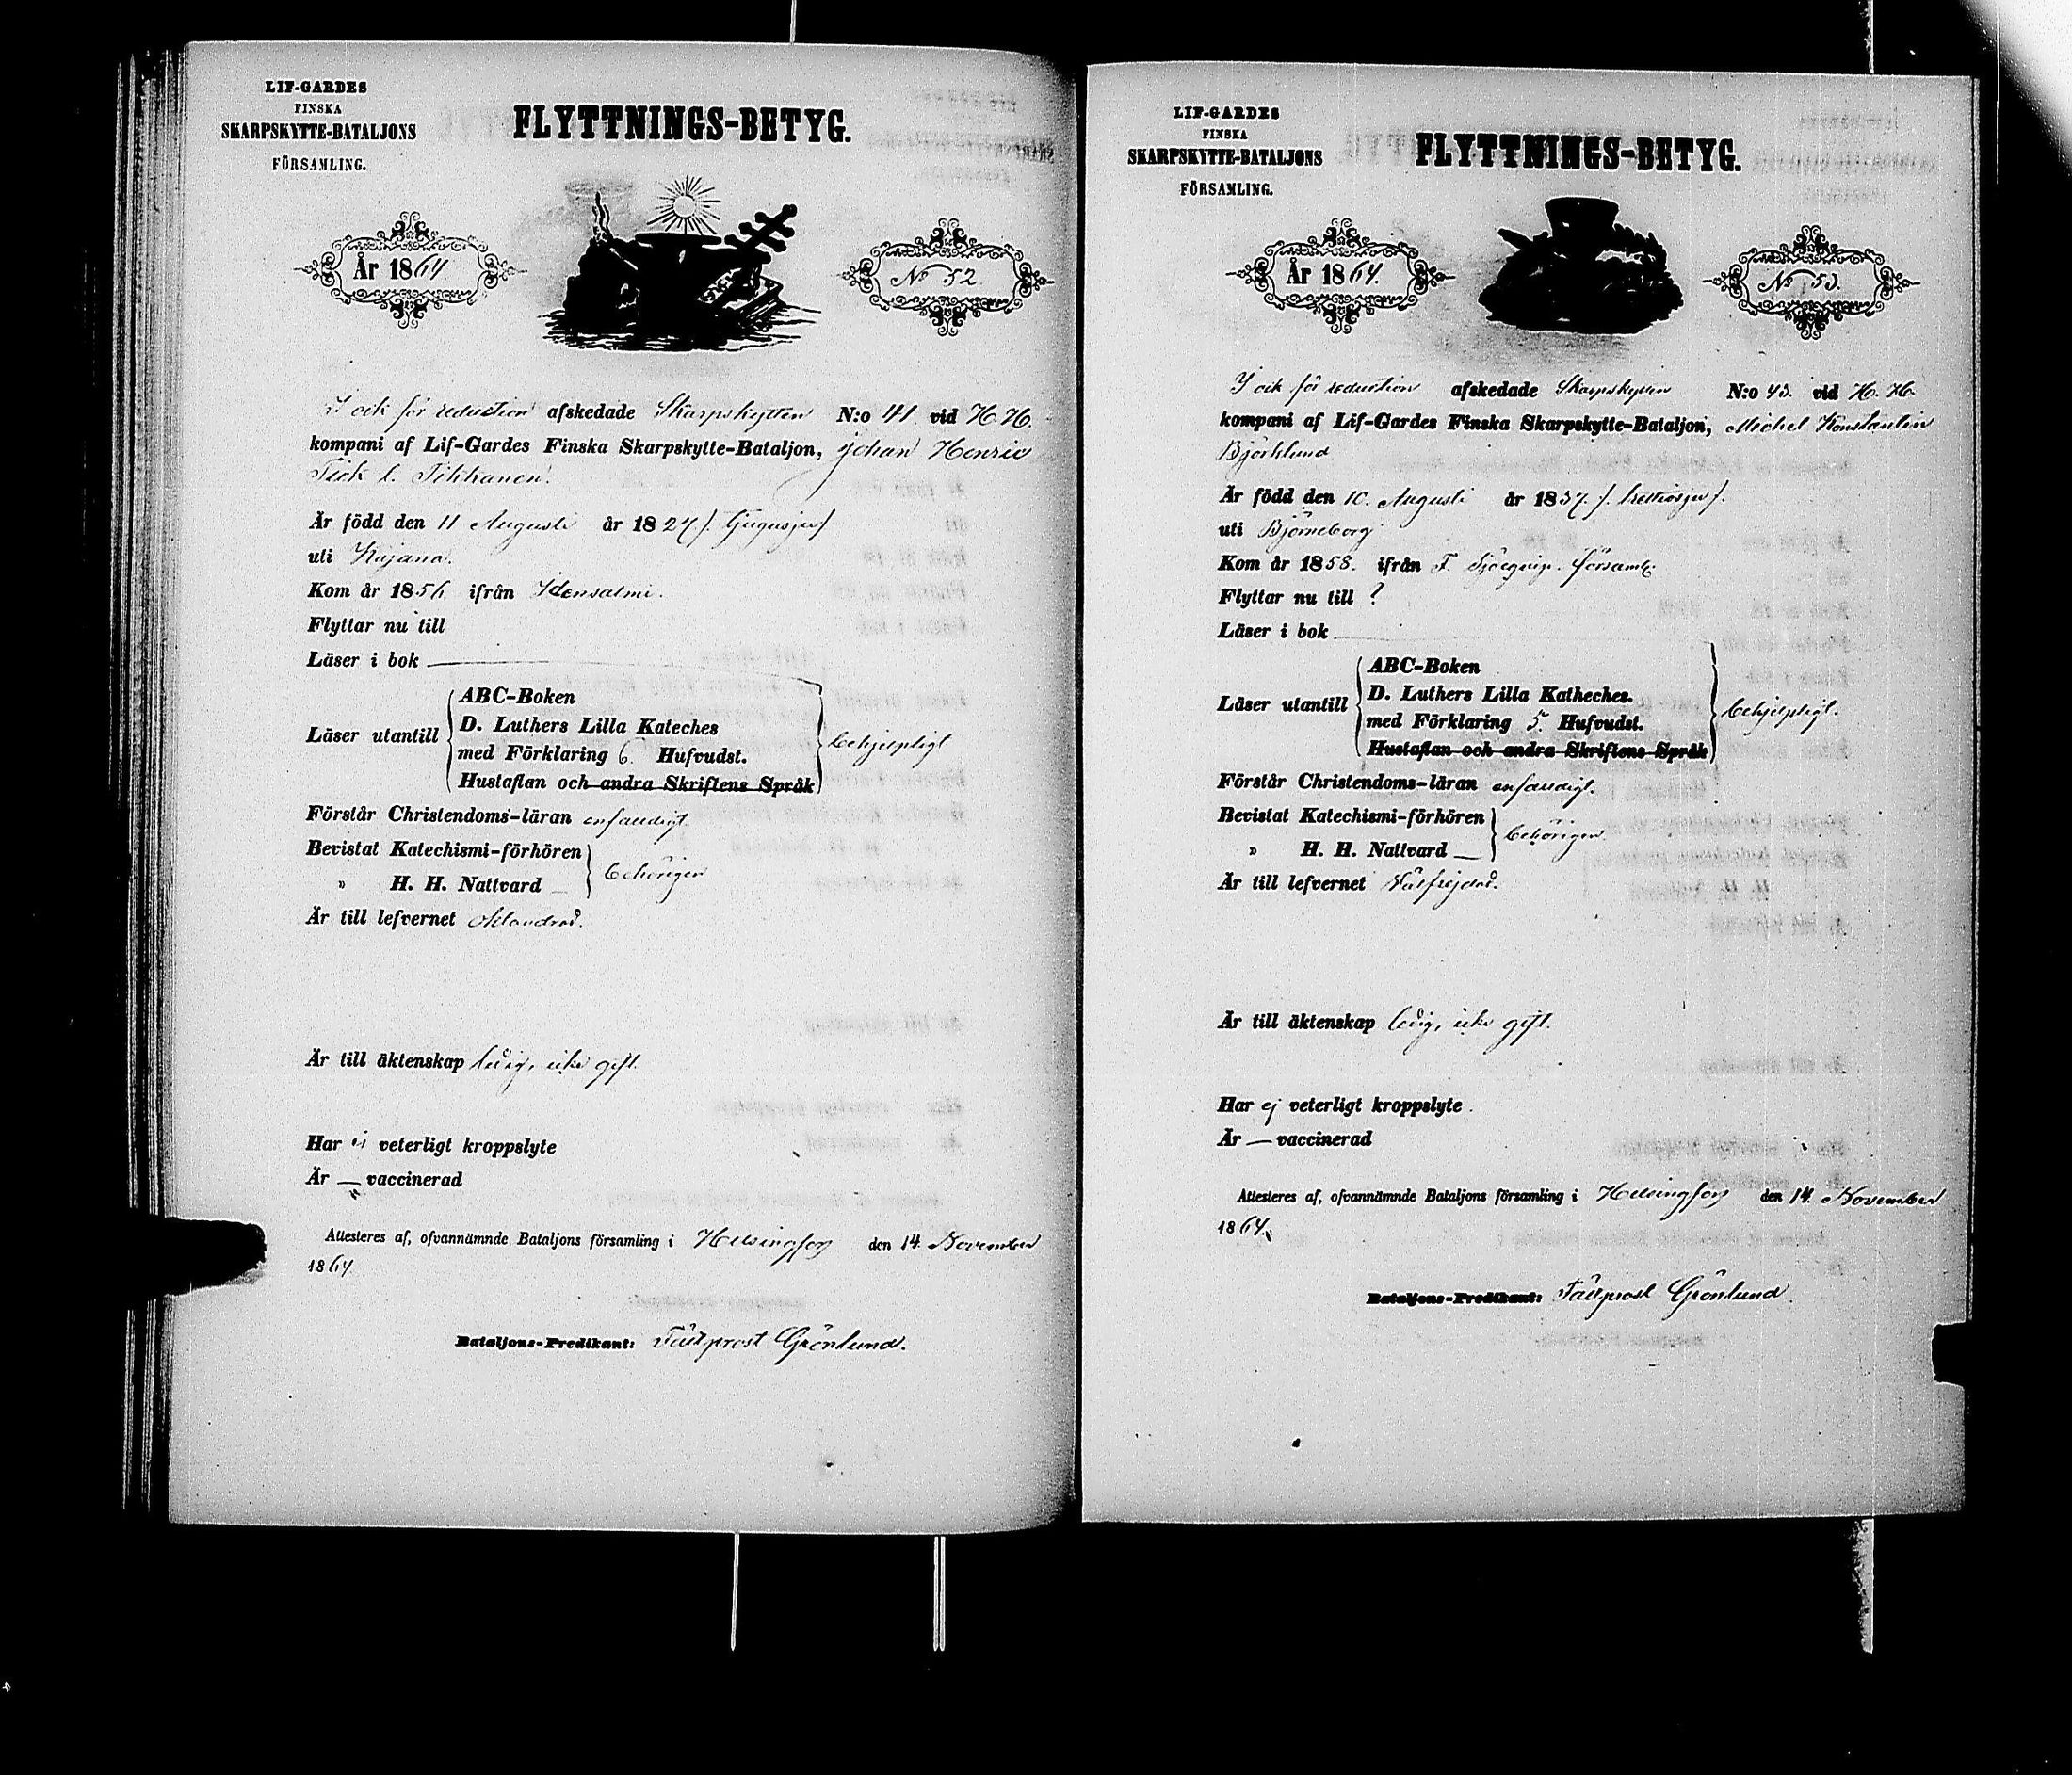 LIF-GARDES
FINSKA
SKARPSKYTTE-BATALJONS
FÖRSAMLING.
FLYTTNINGS-BETYG.
År 1864
No 52.
I och för reduction afskedade Skarpskytten N:o 41 vid H. H.
kompani af Lif-Gardes Finska Skarpskytte-Bataljon, Johan Henric
Tick l. Tikkanen.
Är född den 11 Augusti år 1827 /: tjugusju :/
uti Kajana.
Kom år 1856 ifrån Idensalmi.
Flyttar nu till
Läser i bok
Läser utantill
ABC-Boken
D. Luthers Lilla Kateches
med Förklaring 6. Hufvudst.
Hustaflan och andra Skriftens Språk
behjelpligt
Förstår Christendoms-läran enfaldigt
Bevistat Katechismi-förhören
" H. H. Nattvard
behörigen
Är till lefvernet oklandrad.
Är till äktenskap ledig, icke gift.
Har ej veterligt kroppslyte
Är — vaccinerad
Attesteres af, ofvannämnde Bataljons församling i Helsingfors den 14. November
1864.
Bataljons-Predikant: Fältprost Grönlund.
LIF-GARDES
FINSKA
SKARPSKYTTE-BATALJONS
FÖRSAMLING.
FLYTTNINGS-BETYG.
År 1864.
No 53.
I och för reduction afskedade Skarpskytten N:o 43. vid H. H.
kompani af Lif-Gardes Finska Skarpskytte-Bataljon, Michel Konstantin
Björklund
Är född den 10. Augusti år 1837. /: trettiosju :/.
uti Björneborg
Kom år 1858. ifrån F. Sjöequip. församl.
Flyttar nu till ?
Läser i bok
Läser utantill
ABC-Boken
D. Luthers Lilla Katheches.
med Förklaring 5. Hufvudst.
Hustaflan och andra Skriftens Språk
behjelpligt.
Förstår Christendoms-läran enfaldigt.
Bevistat Katechismi-förhören
" H. H. Nattvard
behörigen
Är till lefvernet Välfrejdad.
Är till äktenskap ledig, icke gift.
Har ej veterligt kroppslyte.
Är — vaccinerad
Attesteres af, ofvannämnde Bataljons församling i Helsingfors den 14. November
1864.
Bataljons-Predikant: Fältprost Grönlund.